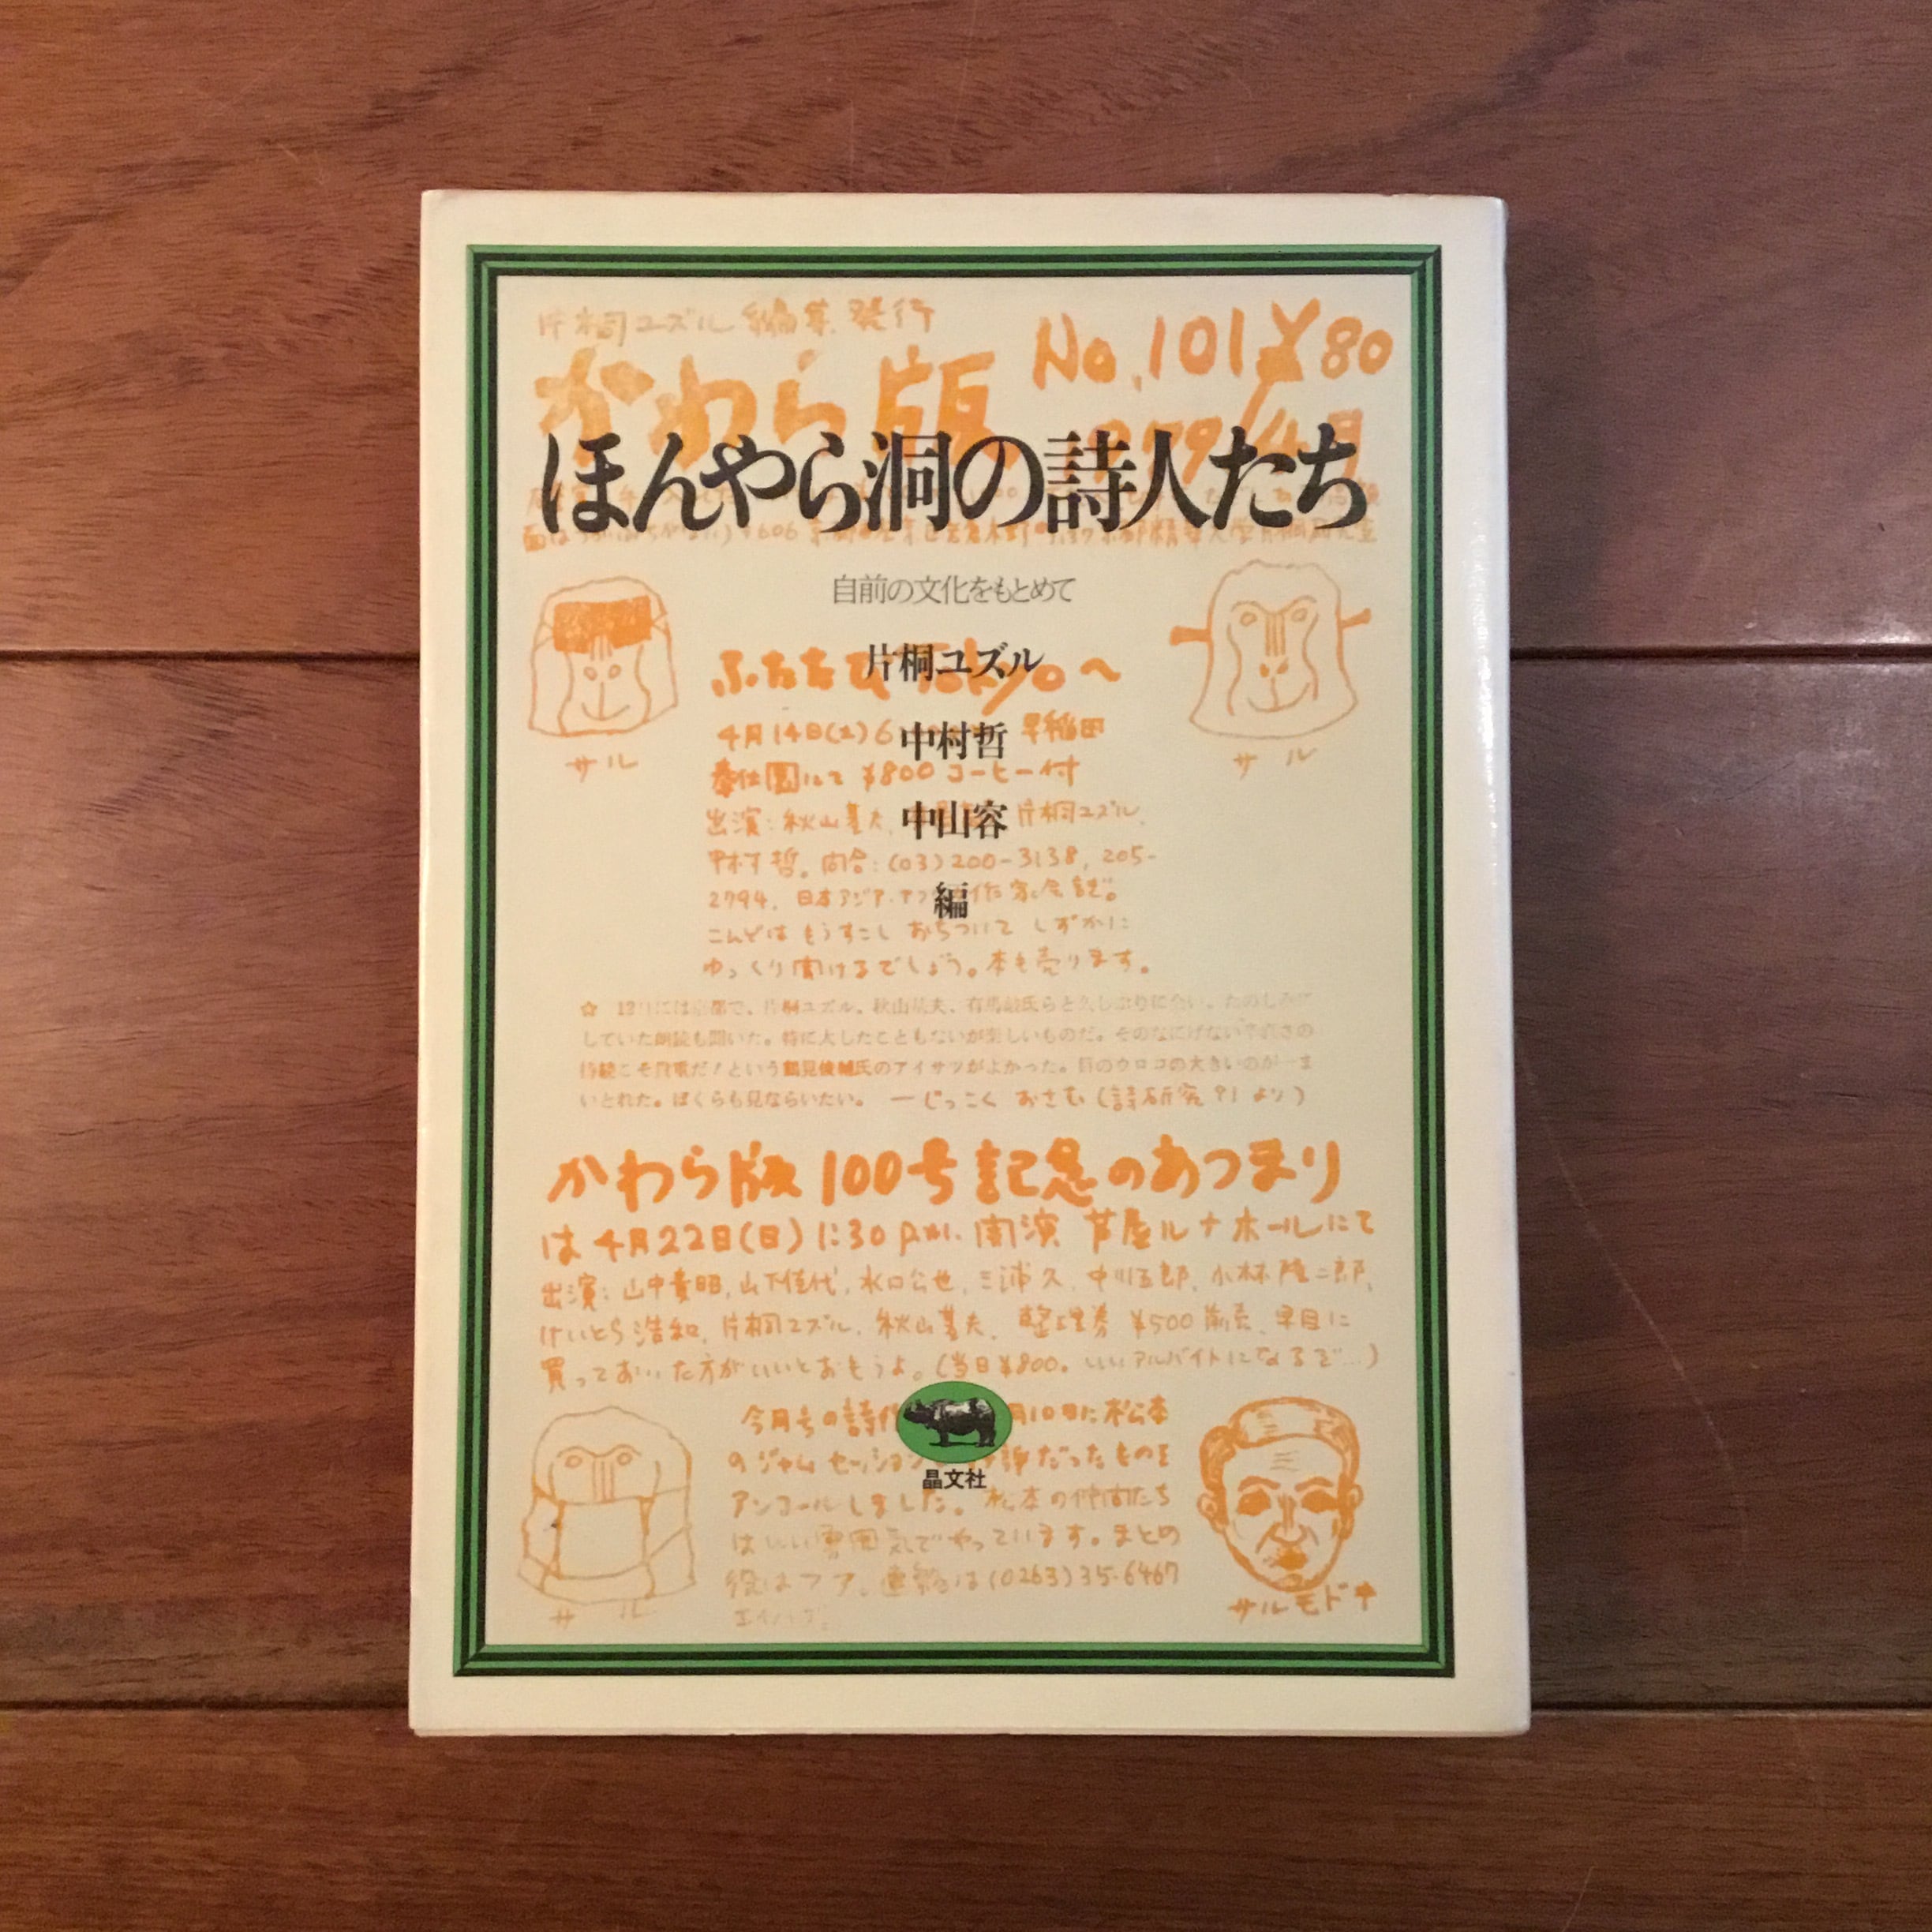 片桐ユズル編集発行
かわら版 No.101 ¥80
1979/4月
ほんやら洞の詩人たち
自前の文化をもとめて
サル
サル
ふたたびTokyoへ
片桐ユズル
4月14日(土)6 早稲田
中村哲
奉仕園にて ¥800 コーヒー付
出演:秋山基夫, 片桐ユズル,
中山容
中村哲。問合:(03)200-3138, 205-
2794. 日本アジア・アフ 作家会議。
編
こんどは もうすこし おちついて しずかに
ゆっくり聞けるでしょう。本も売ります。
☆ 12月には京都で、片桐ユズル、秋山基夫、有馬敲氏らと久しぶりに会い、たのしみに
していた朗読も聞いた。特に大したこともないが楽しいものだ。そのなにげない平 さの
持続こそ貴重だ!という鶴見俊輔氏のアイサツがよかった。目のウロコの大きいのが一ま
いとれた。ぼくらも見ならいたい。 ーじっこく おさむ(詩研究91より)
かわら版100号記念のあつまり
は4月22日(日)1:30 p.m. 開演 芦屋ルナホールにて
出演:山中貴昭, 山下佳代, 水口公也, 三浦久, 中川五郎, 小林隆二郎,
けいとら浩和, 片桐ユズル, 秋山基夫. 整理券 ¥500 前売、早目に
買っておいた方がいいとおもうよ。(当日¥800。いいアルバイトになるぞ…)
今月号の詩 月10日に松本
のジャム セッション 評だったものを
晶文社
アンコールしました。松本の仲間たち
はいい雰囲気でやっています。まとめ
役はフア、連絡は(0263)35-6467
エイハブ。
サル
サルモドキ